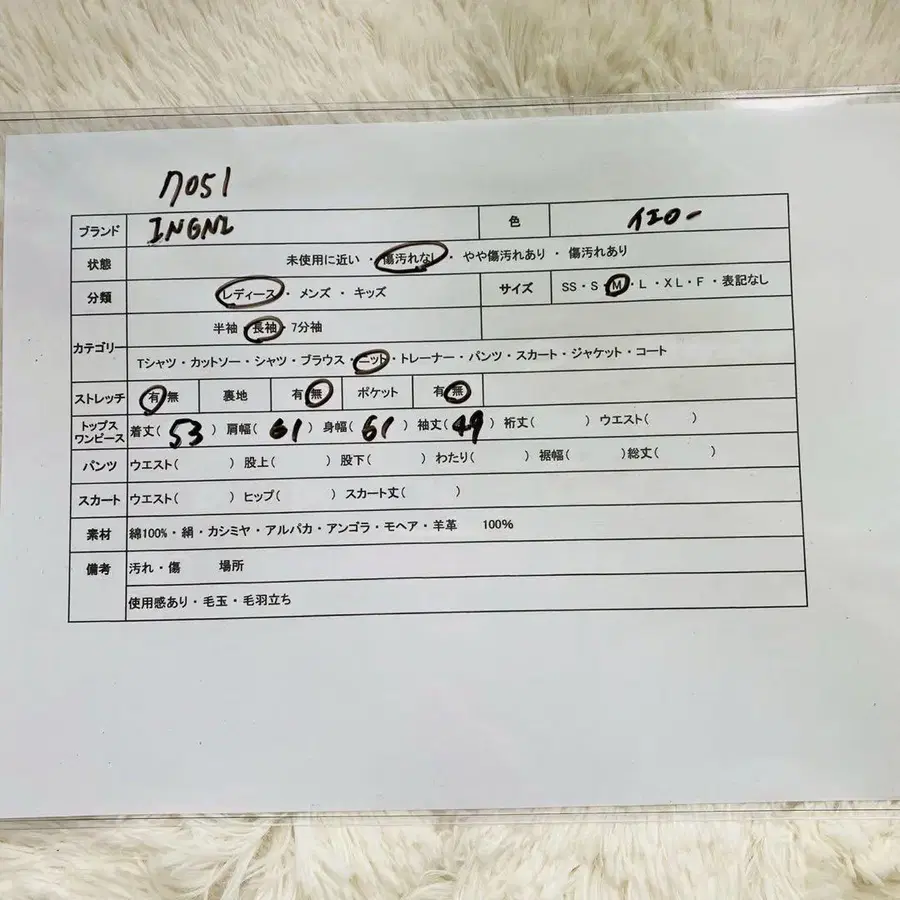 7051
ブランド INGNI 色 イエロー
状態 未使用に近い ・ 傷汚れなし ・ やや傷汚れあり ・ 傷汚れあり
分類 レディース ・ メンズ ・ キッズ サイズ SS・S・M・L・XL・F・表記なし
カテゴリー 半袖・長袖・7分袖
Tシャツ・カットソー・シャツ・ブラウス・ニット・トレーナー・パンツ・スカート・ジャケット・コート
ストレッチ 有 無 裏地 有 無 ポケット 有 無
トップス ワンピース 着丈( 53 ) 肩幅( 61 ) 身幅( 61 ) 袖丈( 49 ) 裄丈( ) ウエスト( )
パンツ ウエスト( ) 股上( ) 股下( ) わたり( ) 裾幅( )総丈( )
スカート ウエスト( ) ヒップ( ) スカート丈( )
素材 綿100%・絹・カシミヤ・アルパカ・アンゴラ・モヘア・羊革 100%
備考 汚れ・傷 場所
使用感あり・毛玉・毛羽立ち